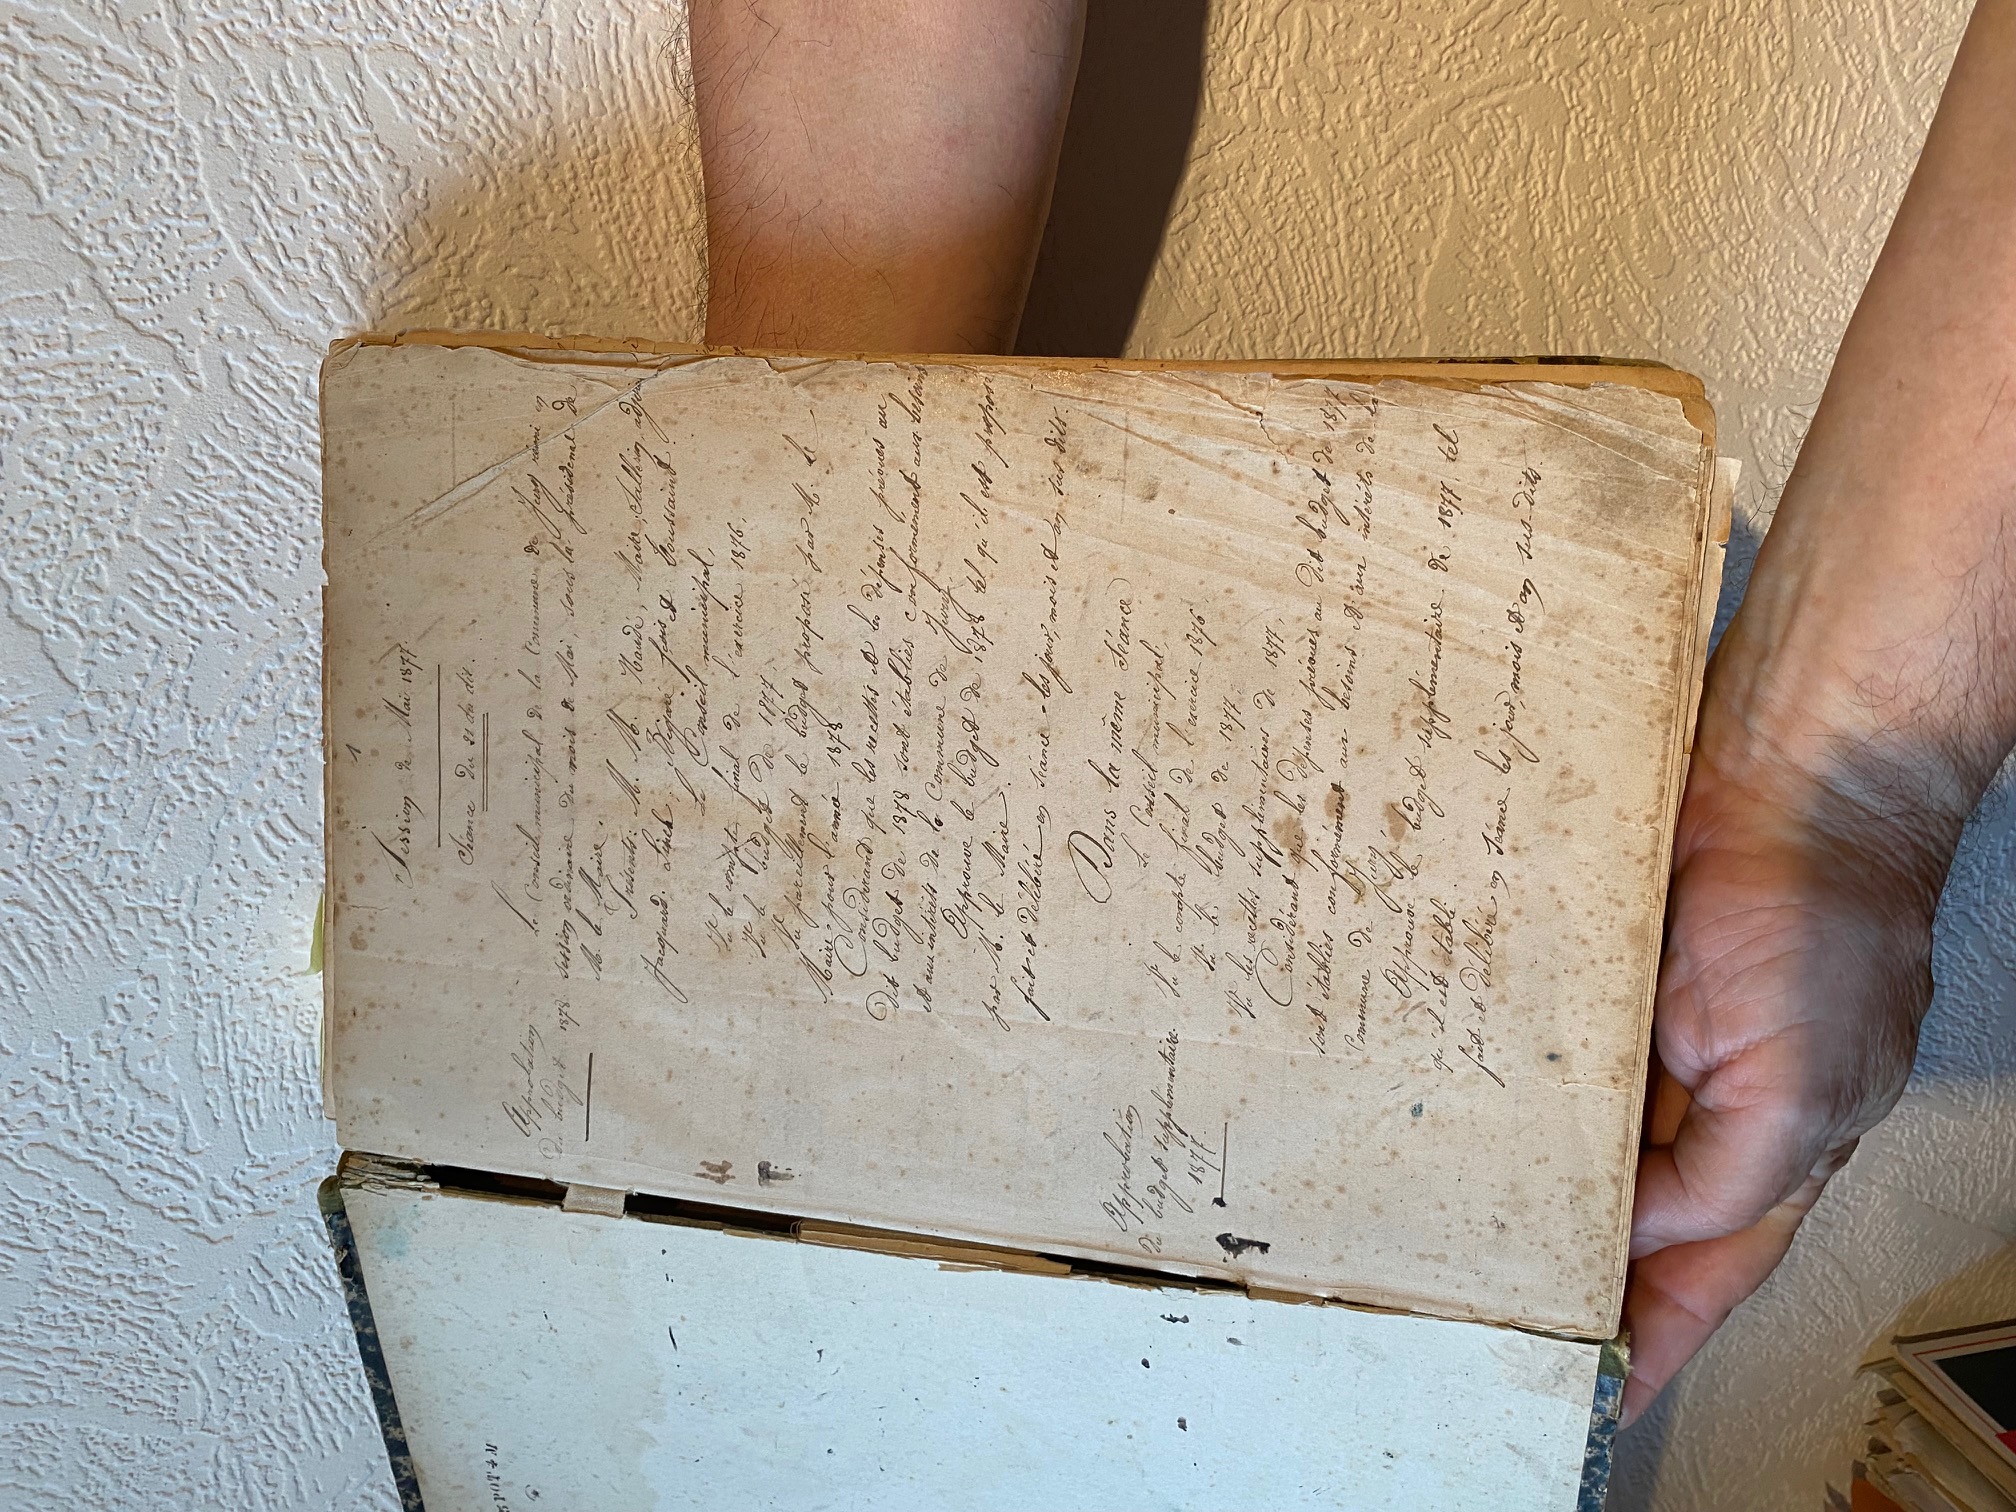 1
Session de Mai 1877.
Séance du 21 du dit.
Approbation
du budget 1878
Le Conseil municipal de la Commune de Jury réuni en
session ordinaire du mois de Mai, sous la présidence de
M. le Maire.
Présents: M. M. Maire, adjoint
Jacquard, et Toussaint.
Le Conseil municipal,
Vu le compte final de l'exercice 1876,
Vu le budget de 1877,
Vu pareillement le budget proposé par M. le
Maire pour l'année 1878
Considérant que les recettes et les dépenses prévues au
dit budget de 1878 sont établies conformément aux besoins
et aux intérêts de la Commune de Jury,
Approuve le budget de 1878 tel qu'il est proposé
par M. le Maire.
fait et délibéré en séance les jour, mois et an sus dits.
Dans la même Séance
Approbation
du budget supplémentaire
1877.
Le Conseil municipal,
Vu le compte final de l'exercice 1876
Vu le budget de 1877,
Vu les recettes supplémentaires de 1877,
Considérant que les dépenses prévues au dit budget de 1877
sont établies conformément aux besoins et aux intérêts de la
Commune de Jury
Approuve le budget supplémentaire de 1877 tel
qu'il est établi.
fait et délibéré en séance les jour, mois et an sus-dits.